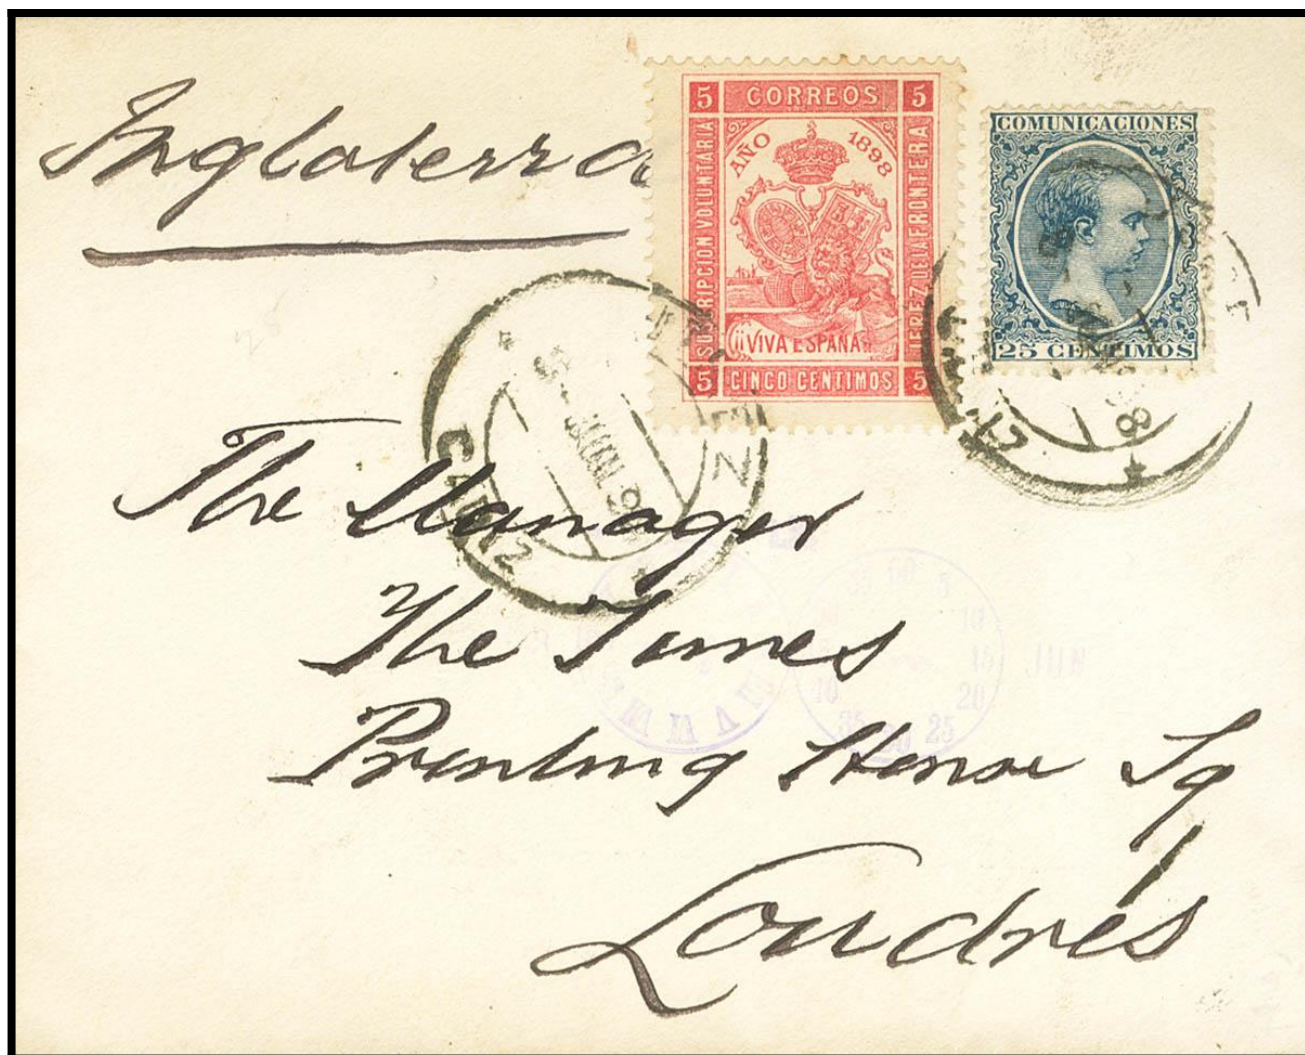 Inglaterra
5 CORREOS 5
AÑO 1898
SUSCRIPCION VOLUNTARIA
JEREZ DE LA FRONTERA
¡¡VIVA ESPAÑA!!
5 CINCO CENTIMOS 5
COMUNICACIONES
25 CENTIMOS
CADIZ
JUN
The Manager
The Times
Printing House Sq
Londres
5
10
15
20
25
JUN